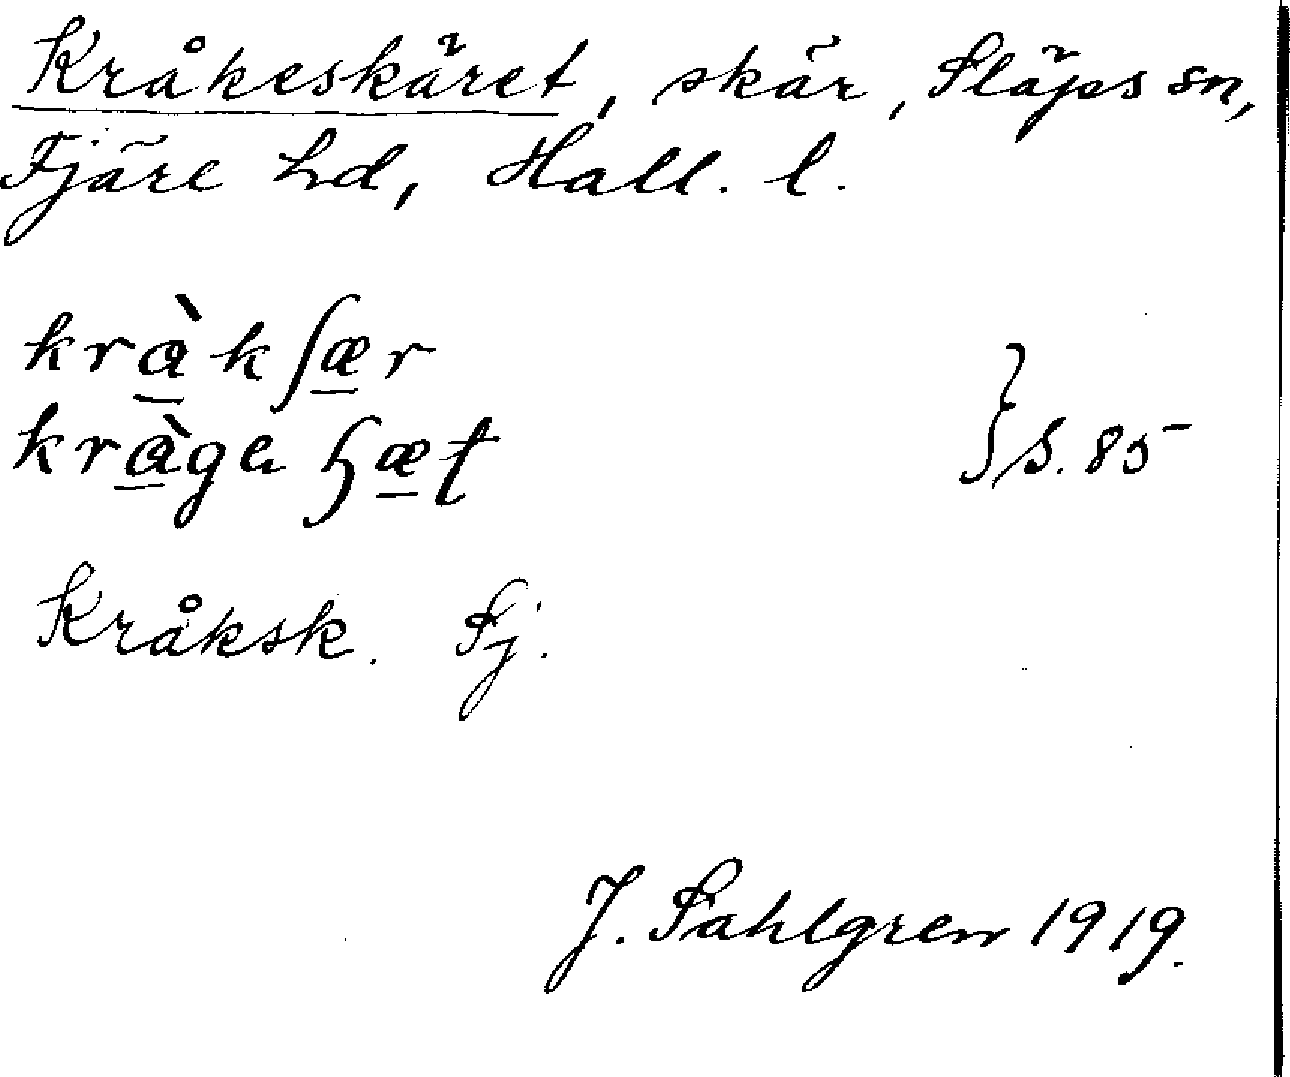 Kråkeskäret, skär, Släps sn,
Fjäre hd, Hall. l.
krà̲kʃæ̲r
krà̲ge ɧæ̲t } S. 85
Kråksk. Fj.
J. Sahlgren 1919.